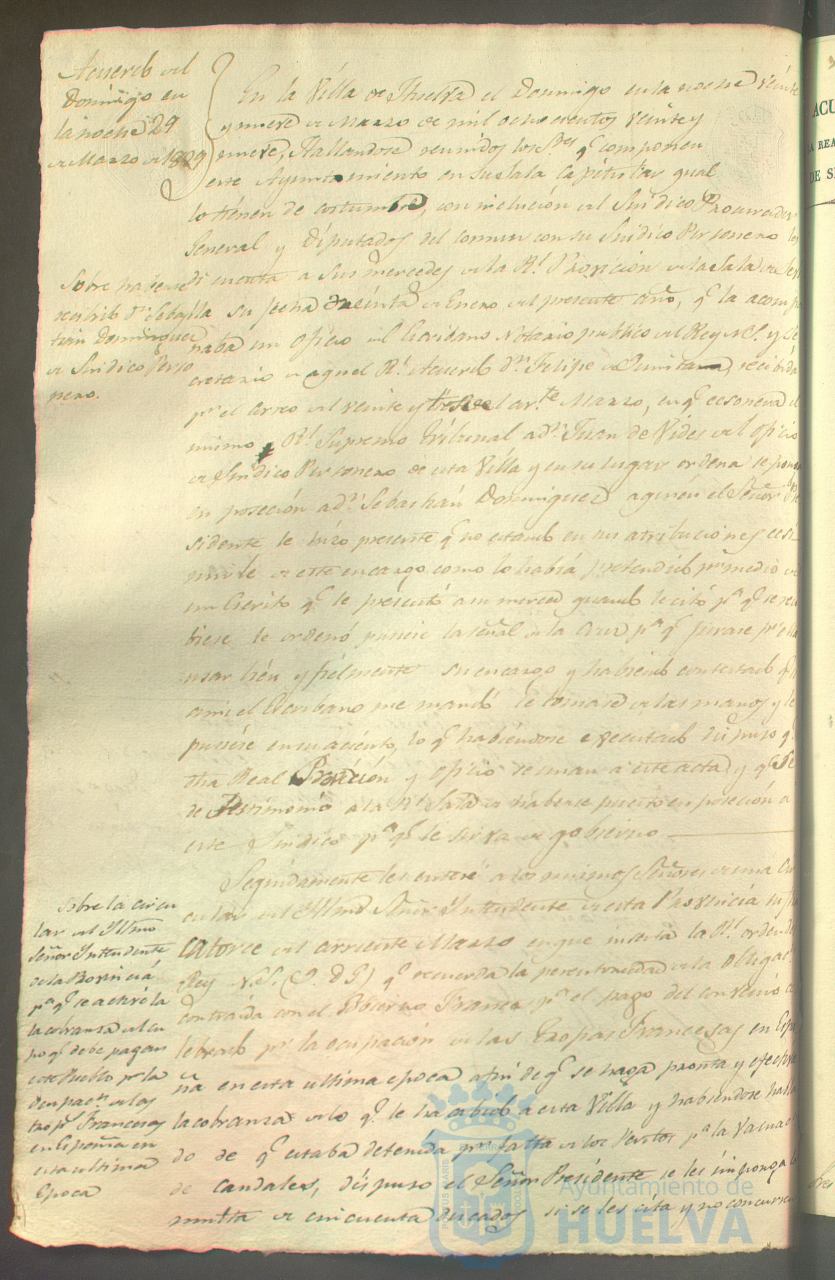 Acuerdo del
Domingo en
la noche 29
de Marzo de 1829
En la Villa de Huelva el Domingo en la noche veinte
y nueve de Marzo de mil ochocientos veinte y
nueve, Hallandose reunidos los Sres q componen
este Ayuntamiento en su sala capitular qual
lo tienen de costumbre, con inclución del Sindico Procurador
General y Diputados del comun con su Sindico Personero
Sobre haberse
recibido Dn Sebas
tian Dominguez
de Sindico Perso
nero.
di cuenta a sus mercedes de la Rl Provición de la sala de
su fecha treinta de Enero del presente año, q la acompa
ñaba un oficio del Escribano Notario publico del Rey N.S. y Se
cretario de aquel Rl Acuerdo Dn Felipe de recibida
pr el correo del veinte y Marzo, en q
mismo Rl Supremo Tribunal a Dn Juan de Vides del oficio
de Sindico Personero de esta Villa y en su lugar ordena se ponga
en poseción a Dn Sebastián Dominguez a quien el Señor Pre
sidente le hizo presente q no estando en sus atribuciones
de este encargo como lo habia pretendido pr medio de
un Escrito q le presentó a su merced quando le citó pa q se reci
biese le ordenó puciese la señal de la Cruz pa q jurase pr ella
usar bien y fielmente su encargo y habiendo contestado q
a mi el Escribano me mandó le tomase de las manos y le
pusiese en su aciento, lo q habiendose executado dispuso q
dha Real Provición y oficio se unan a este acta y q se
de Testimonio a la Rl Sala de haberse puesto en poseción a
este Sindico pa q le sirva de gobierno
Sobre la circu
lar del Illmo
Señor Intendente
de la Provincia
pa q se active la
cobranza del cu
po q debe pagar
este Pueblo pr la
Ocupacn de las
trops Francesas
en España en
esta ultima
Epoca
Seguidamente les enteré a los mismos Señores de una Cir
cular del Illmo Señor Yntendente de esta Provincia su fha
catorce del corriente Marzo en que incerta la Rl orden del
Rey N.S. (Q. D. G.) q recuerda la perentoriedad de la obligacn
contraida con el Gobierno Frances pr el pago del convenio ce
lebrado pr la ocupación de las Tropas Francesas en Espa
ña en esta ultima epoca a fin de q se haga pronta y efectiva
la cobranza de lo q le ha cabido a esta Villa y habiendose halla
do de q estaba detenida pr falta de los Peritos pa la valuacn
de caudales, dispuso el Señor Presidente se les imponga la
multa de cincuenta ducados si se les cita y no concurren
Ayuntamiento de
HUELVA